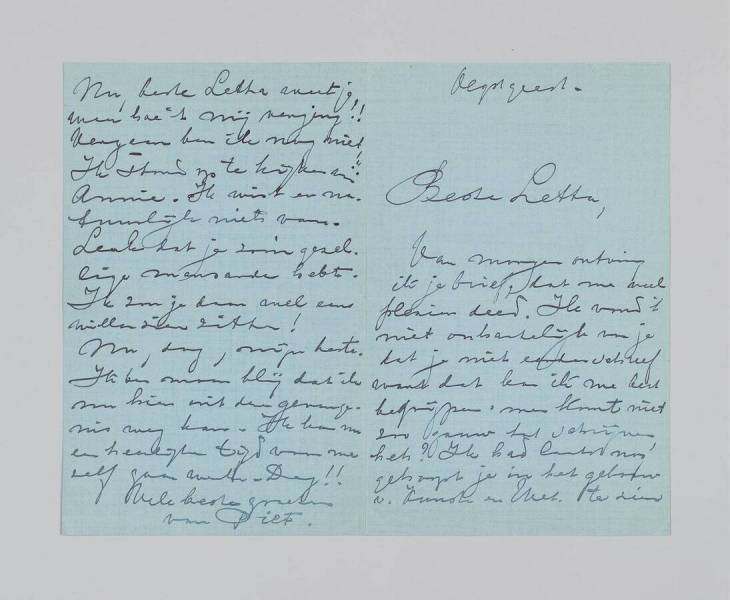 Oegstgeest.
Beste Letta,
Van morgen ontving
ik je brief, dat me veel
plezier deed. Ik vond 't
niet onhartelijk van je
dat je niet eerder schreef
want dat kan ik me best
begrijpen. men komt niet
zoo gauw tot schrijven,
hè? Ik had
gehoopt je in het gebouw
v. Kunst en Wet. te zien
Nu, beste Letta weet je
van mij
Vergeten ben ik nog niet!
Ik stond op te kijken v.
Annie. Ik wist er na-
tuurlijk niets van.
Leuk dat je zoo'n gezel-
lige mansarde hebt.
Ik zou je daar wel eens
willen zien zitten!
Nu, dag, mijn beste.
Ik ben maar blij dat ik
nu hier uit de gevange-
nis weg kan. Ik kan nu
en heerlijke tijd voor me
zelf gaan werken. Dag!!
Vele beste groeten
van Diet.